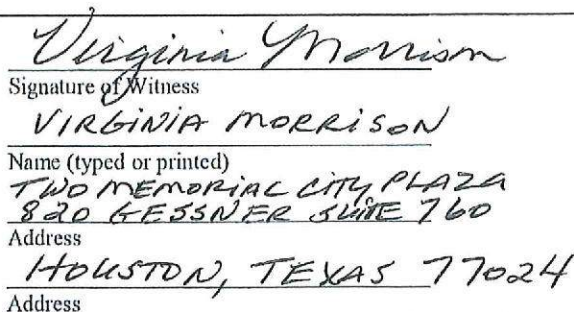 Virginia Morrison
Signature of Witness
VIRGINIA MORRISON
Name (typed or printed)
TWO MEMORIAL CITY PLAZA
820 GESSNER SUITE 760
Address
HOUSTON, TEXAS 77024
Address